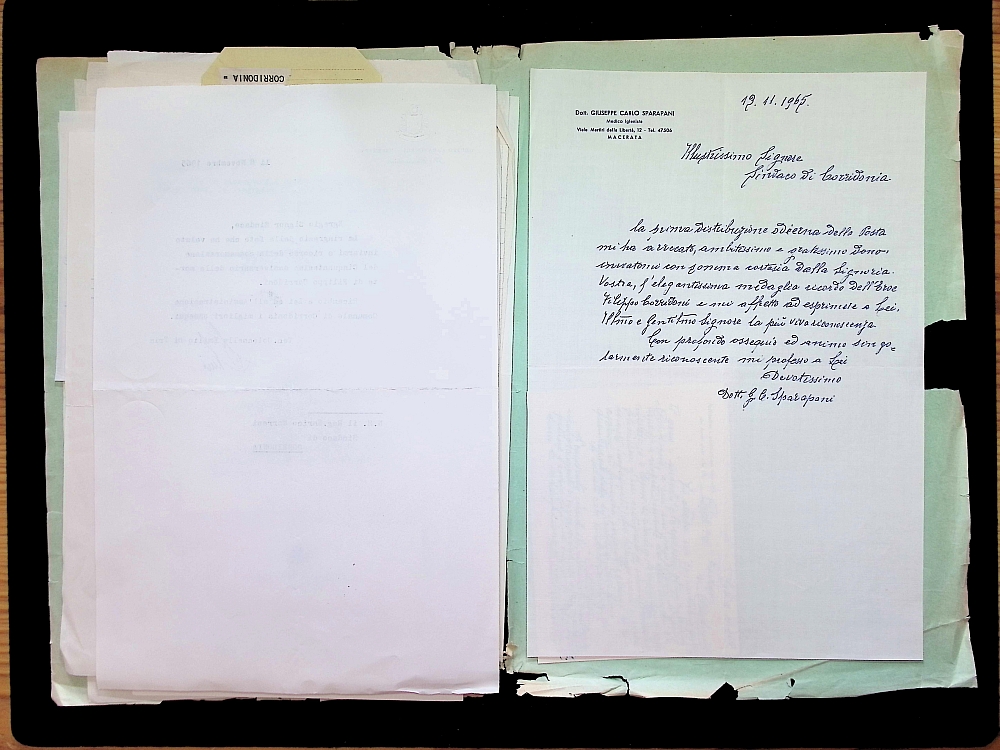 CORRIDONIA
19.11.1965.
Dott. GIUSEPPE CARLO SPARAPANI
Medico Igienista
Viale Martiri della Libertà, 12 - Tel. 47506
MACERATA
Illustrissimo Signore
Sindaco di Corridonia
la prima distribuzione odierna della Posta
mi ha arrecato, ambitissimo e gratissimo dono
inviatomi con somma cortesia dalla Signoria
Vostra, l'elegantissima medaglia ricordo dell'Eroe
Filippo Corridoni e mi affretto ad esprimere a Lei,
Ill.mo e Gent.lmo Signore la più viva riconoscenza.
Con profondo ossequio ed animo singo=
larmente riconoscente mi professo a Lei
Devotissimo
Dott. G. C. Sparapani